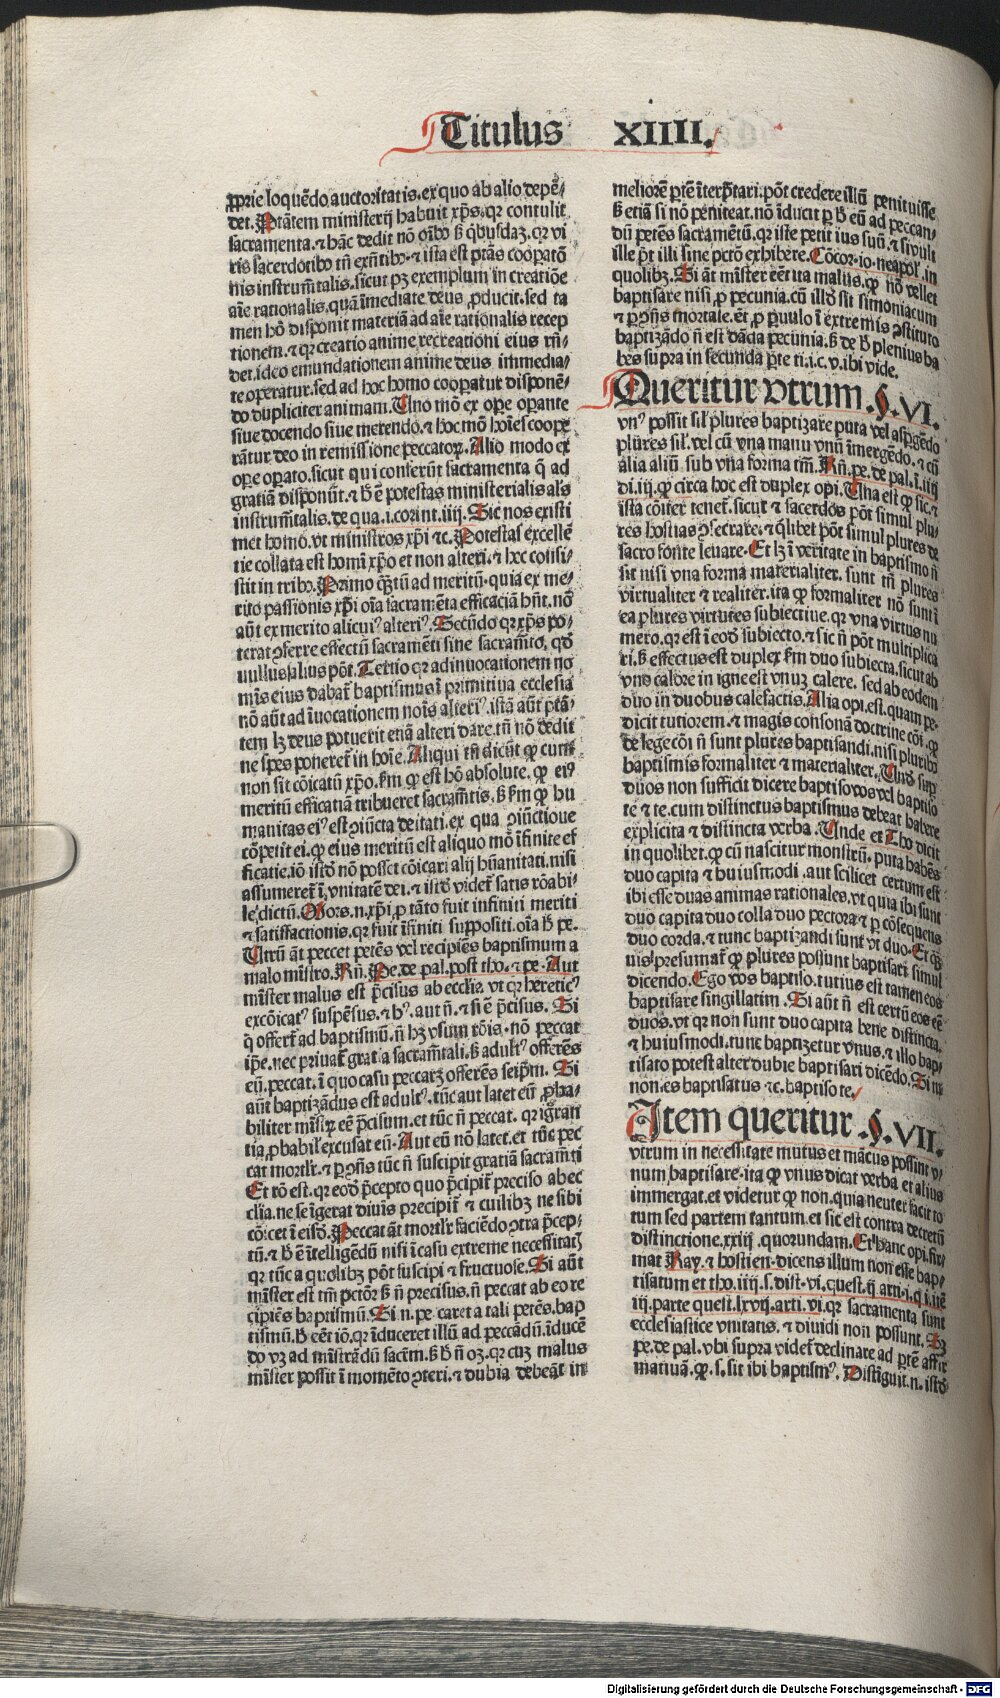 Titulus XIIII.
ꝓprie loquēdo auctoritatis. ex quo ab alio depē-
det. Ptātem ministerij habuit xp̄s. qꝛ contulit
sacramenta. ⁊ hāc dedit nō oīb9 s̄ qͥbusdaꝫ. qꝛ vi
ris sacerdotib9 tm̄ exn̄tib9. ⁊ ista est ptās cooꝑatō
nis instrum̄talis. sicut pꝫ exemplum in creatiōe
aīe rationalis. quā īmediate deus ꝓducit. sed ta
men hō disponit materiā ad aīe rationalis recep
tionem. ⁊ qꝛ creatio anime recreationi eius rn̄-
det. ideo emundationem anime deus immedia-
te operatur. sed ad hoc homo cooꝑatur disponē-
do dupliciter animam. Uno mō ex oꝑe oꝑante
siue docendo siue merendo. ⁊ hoc mō hoīes cooꝑe
rātur deo in remissione peccatoꝝ. Alio modo ex
oꝑe oꝑato. sicut qui conferūt sacramenta q̄ ad
gratiā disponūt. ⁊ h̄ ē potestas ministerialis als
instrum̄talis. de qua .i. corint. iiij. Sic nos existi
met homo. vt ministros xp̄i ⁊c. Potestas excellē
tie collata est homī xp̄o et non alteri. ⁊ hec consi-
stit in trib9. Primo qͣꝫtū ad meritū. quia ex me-
rito passionis xp̄i oīa sacramēta efficaciā hn̄t. nō
aūt ex merito alicui9 alteri9. Secūdo qꝛ xp̄s po-
terat ꝯferre effectū sacramēti sine sacram̄to. qd̄
nullus alius pōt. Tertio qꝛ ad inuocationem no
mīs eius dabat̄ baptismus ī primitiua ecclesia
nō aūt ad īuocationem noīs alteri9. istā aūt ptā-
tem lꝫ deus potuerit etiā alteri dare. tn̄ nō dedit
ne spes poneret̄ in hoīe. Aliqui tn̄ dicūt ꝙ cum
non sit cōicatū xp̄o. ẜm ꝙ est hō absolute. ꝙ ei9
meritū efficatiā tribueret sacram̄tis. s̄ ẜm ꝙ hu
manitas ei9 est ꝯiūcta deitati. ex qua ꝯiūctione
cōpetit ei. ꝙ eius meritū est aliquo mō īfinite ef
ficatie. iō istd̄ nō posset cōicari alij hūanitati. nisi
assumeret̄ ī vnitatē dei. ⁊ istd̄ videt̄ satis rōabi-
le dictū. Mors .n. xp̄i ꝓ tāto fuit infiniti meriti
⁊ satisfactionis. qꝛ fuit īfiniti suppositi. oīa h̄ pe.
Utrū āt peccet petēs vel recipiēs baptismum a
malo mīstro. Rn̄. Pe. de pal. post tho. ⁊ pe. Aut
mīster malus est p̄cisus ab ecclīa. vt qꝛ heretic9
excōicat9 suspēsus. ⁊ h9. aut n̄. ⁊ si ē p̄cisus. Si
q̄ offert̄ ad baptismū. n̄ hꝫ vsum rōis. nō peccat
ip̄e. nec priuat̄ gratīa sacram̄tali. s̄ adult9 offerēs
eū. peccat. ī quo casu peccarꝫ offerēs seip̄m. Si
aūt baptizādus est adult9. tūc aut latet eū ꝓba-
biliter mīstꝝ eē p̄cisum. et tūc n̄ peccat. qꝛ igrāti
tia ꝓbabil̓ excusat eū. Aut eū nō latet. et tūc pec
cat mortlr̄. ⁊ ꝑ ꝯn̄s tūc n̄ suscipit gratiā sacram̄ti
Et rō est. qꝛ eod̄ p̄cepto quo p̄cipit̄ preciso ab ec
clīa. ne se īgerat diuīs precipit̄ ⁊ cuilibꝫ ne sibi
cōīcet ī eisd̄. Peccat āt mortlr̄ faciēdo ꝯtra p̄cep-
tū. ⁊ h̄ ē ītelligēdū nisi ī casu extreme necessitatꝭ
qꝛ tūc a quolibꝫ pōt suscipi ⁊ fructuose. Si aūt
mīster est tm̄ pctōr s̄ n̄ precisus. n̄ peccat ab eo re
cipiēs baptismū. Si .n. pe. caret a tali petēs. bap
tismū. h̄ eēt iō. qꝛ īduceret illū ad peccādū. īducē
do vꝫ ad mīstrādū sacm̄. s̄ h̄ n̄ oꝫ. qꝛ cuꝫ malus
mīster possit ī momēto ꝯteri. ⁊ dubia debeāt in
meliorē ꝑtē īterp̄tari. pōt credere illū penituisse
s̄ etiā si nō peniteat. nō īducit ꝑ h̄ eū ad peccan-
dū petēs sacramētū. qꝛ iste petit ius suū. ⁊ si vult
ille p̄t illi sine pctō exhibere. Cōcor. io. neapol̓. in
quolibꝫ. Si āt mīster eēt ita malus. ꝙ nō vellet
baptisare nisi ꝓ pecunia. cū illd̄ sit simoniacum
⁊ ꝑ ꝯn̄s mortale. ēt ꝓ paruulo ī extremis ꝯstituto
baptizādo n̄ est dāda pecunia. s̄ de h̄ plenius ha
bes supra in secunda ꝑte ti. i. c. v. ibi vide.
Queritur vtrum .§. VI.
vn9 possit sil̓ plures baptizare puta vel aspgēdo
plures sil̓. vel cū vna manu vnū īmergēdo. ⁊ cū
alia aliū sub vna forma tm̄. Rn̄. pe. de pal. ī. iiij
di. iij. ꝙ circa hoc est duplex opi. Una est ꝙ sic. ⁊
ista cōiter tenet̄. sicut ⁊ sacerdos pōt simul plu-
res hostias ꝯsecrare. ⁊ qͥlibet pōt simul plures de
sacro fonte leuare. Et lꝫ ī veritate in baptismo n̄
sit nisi vna forma materialiter. sunt tn̄ plures
virtualiter ⁊ realiter. ita ꝙ formaliter nō sunt ī
ea plures virtutes subiectiue. qꝛ vna virtus nu
mero. qꝛ est ī eod̄ subiecto. ⁊ sic n̄ pōt multiplica
ri. s̄ effectus est duplex ẜm duo subiecta. sicut ab
vno calore in igne est vnuꝫ calere. sed ab eodem
duo in duobus calefactis. Alia opi. est. quam pe.
dicit tutiorem. ⁊ magis consonā doctrine cōi. ꝙ
de lege cōi n̄ sunt plures baptisandi. nisi plurib9
baptismis formaliter ⁊ materialiter. Und̄ sup
duos non sufficit dicere baptiso vos vel baptiso
te ⁊ te. cum distinctus baptismus debeat habere
explicita ⁊ distincta verba. Unde et Tho dicit
in quolibet. ꝙ cū nascitur monstrū. puta habēs
duo capita ⁊ huiusmodi. aut scilicet certum est
ibi esse duas animas rationales. vt quia ibi sunt
duo capita duo colla duo pectora ⁊ ꝑ cōsequens
duo corda. ⁊ tunc baptizandi sunt vt duo. Et qͣꝫ
uis presumat̄ ꝙ plures possunt baptisari simul
dicendo. Ego vos baptiso. tutius est tamen eos
baptisare singillatim. Si aūt n̄ est certū eos eē
duos. vt qꝛ non sunt duo capita bene distincta.
⁊ huiusmodi. tunc baptizetur vnus. ⁊ illo bap-
tisato potest alter dubie baptisari dicēdo. Si tu
non es baptisatus ⁊c. baptiso te.
Item queritur .§. VII.
vtrum in necessitate mutus et mācus possint v-
num baptisare. ita ꝙ vnus dicat verba et alius
immergat. et videtur ꝙ non. quia neuter facit to
tum sed partem tantum. et sic est contra decretū
distinctione. xxiij. quorundam. Et hanc opi. fir-
mat Ray. ⁊ hostien. dicens illum non esse bap-
tisatum et tho. iiij. s. dist. vi. quest. ij. arti. i. q. i. itē
iij. parte quest. lxvij. arti. vi. qꝛ sacramenta sunt
ecclesiastice vnitatis. ⁊ diuidi non possunt. Sꝫ
pe. de pal. vbi supra videt̄ declinare ad ꝑtē affir
matiuā. ꝙ .s. sit ibi baptism9. Distīguit .n. istd̄
Digitalisierung gefördert durch die Deutsche Forschungsgemeinschaft - DFG